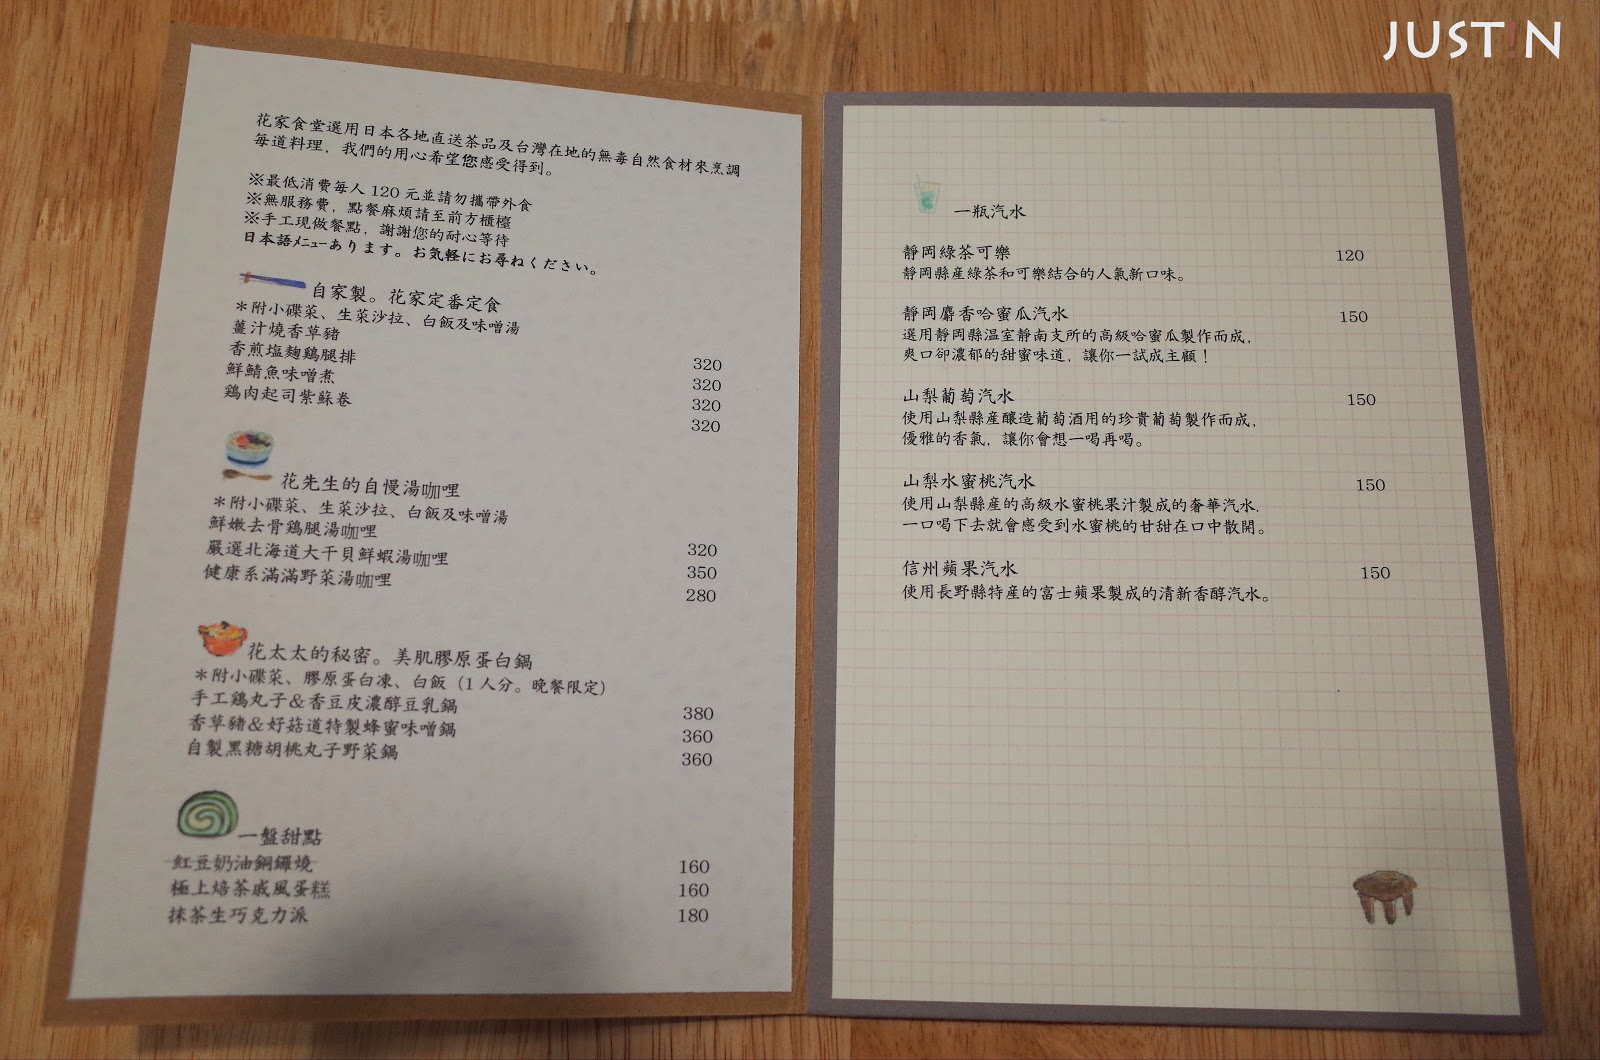 JUST!N
花家食堂選用日本各地直送茶品及台灣在地的無毒自然食材來烹調
每道料理，我們的用心希望您感受得到。
※最低消費每人 120 元並請勿攜帶外食
※無服務費，點餐麻煩請至前方櫃檯
※手工現做餐點，謝謝您的耐心等待
日本語メニューあります。お気軽にお尋ねください。
自家製。花家定番定食
＊附小碟菜、生菜沙拉、白飯及味噌湯
薑汁燒香草豬 320
香煎塩麹鶏腿排 320
鮮鯖魚味噌煮 320
鶏肉起司紫蘇卷 320
花先生的自慢湯咖哩
＊附小碟菜、生菜沙拉、白飯及味噌湯
鮮嫩去骨鶏腿湯咖哩 320
嚴選北海道大干貝鮮蝦湯咖哩 350
健康系滿滿野菜湯咖哩 280
花太太的秘密。美肌膠原蛋白鍋
＊附小碟菜、膠原蛋白凍、白飯（1 人分。晚餐限定）
手工鶏丸子＆香豆皮濃醇豆乳鍋 380
香草豬＆好菇道特製蜂蜜味噌鍋 360
自製黑糖胡桃丸子野菜鍋 360
一盤甜點
紅豆奶油銅鑼燒 160
極上焙茶戚風蛋糕 160
抹茶生巧克力派 180
一瓶汽水
靜岡綠茶可樂 120
靜岡縣産綠茶和可樂結合的人氣新口味。
靜岡麝香哈蜜瓜汽水 150
選用靜岡縣温室靜南支所的高級哈蜜瓜製作而成，
爽口卻濃郁的甜蜜味道，讓你一試成主顧！
山梨葡萄汽水 150
使用山梨縣産釀造葡萄酒用的珍貴葡萄製作而成，
優雅的香氣，讓你會想一喝再喝。
山梨水蜜桃汽水 150
使用山梨縣産的高級水蜜桃果汁製成的奢華汽水，
一口喝下去就會感受到水蜜桃的甘甜在口中散開。
信州蘋果汽水 150
使用長野縣特産的富士蘋果製成的清新香醇汽水。